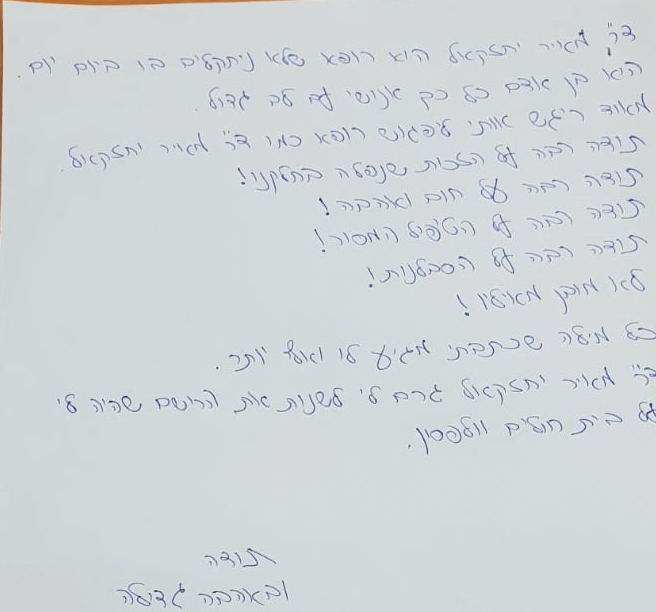 ד"ר מאיר יחזקאל הוא רופא שלא ניתקלים בו ביום יום.
הוא בן אדם כל כך אנושי עם לב גדול.
מאוד ריגש אותי לפגוש רופא כמו ד"ר מאיר יחזקאל.
תודה רבה על הזכות שנפלה בחלקנו!
תודה רבה על חום ואהבה!
תודה רבה על הטיפול המסור!
תודה רבה על הסבלנות!
לא מובן מאיליו!
כל מילה שכתבתי מגיע לו ואף יותר.
ד"ר מאיר יחזקאל גרם לי לשנות את הרושם שהיה לי
על בית חולים וולפסון.
תודה
ובאהבה גדולה